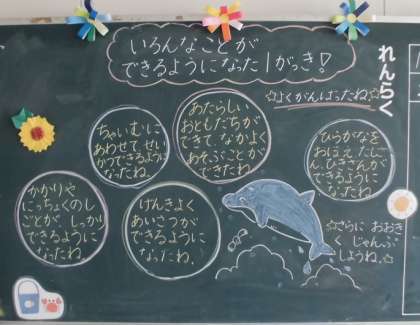 いろんなことが
できるようになった1がっき!
れんらく
☆よくがんばったね。☆
あたらしい
おともだちが
できて、なかよく
あそぶことが
できたね。
ちゃいむに
あわせて、せい
かつできるように
なったね。
ひらがなを
おぼえ、たしざ
ん、ひきざんが
できるように
なったね。
かかりや
にっちょくのし
ごとが、しっかり
できるように
なったね。
げんきよく
あいさつが
できるように
なったね。
☆さらに おおき
く じゃんぷ
しようね。☆